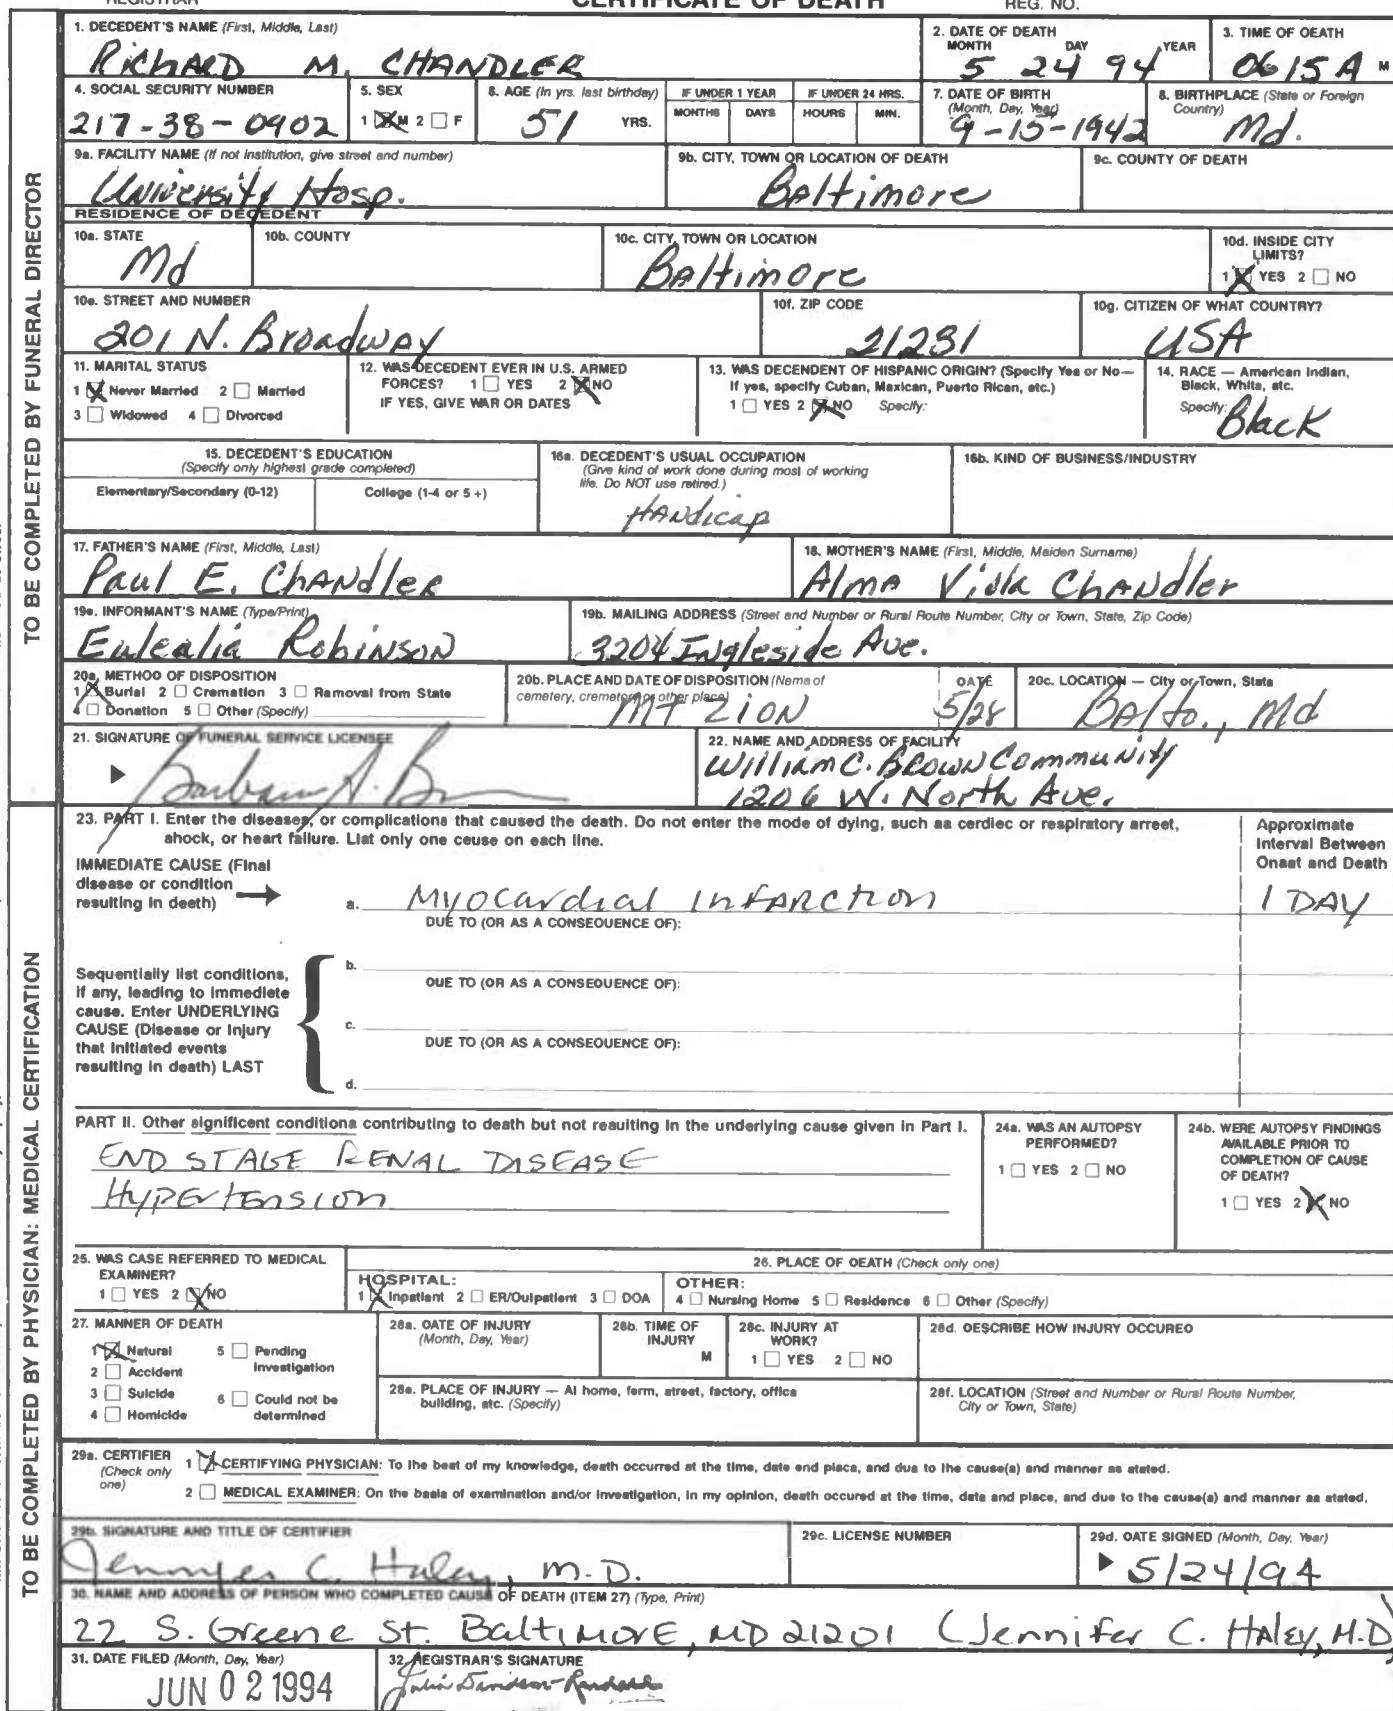 REGISTRAR CERTIFICATE OF DEATH REG. NO.
TO BE COMPLETED BY FUNERAL DIRECTOR
1. DECEDENT'S NAME (First, Middle, Last)
Richard M. CHANDLER
2. DATE OF DEATH
MONTH DAY YEAR
5 24 94
3. TIME OF OEATH
0615 A M
4. SOCIAL SECURITY NUMBER
217-38-0902
5. SEX
1 M 2 F
6. AGE (In yrs. last birthday)
51 YRS.
IF UNDER 1 YEAR
MONTHS DAYS
IF UNDER 24 HRS.
HOURS MIN.
7. DATE OF BIRTH
(Month, Day, Year)
9-15-1942
8. BIRTHPLACE (State or Foreign
Country)
Md.
9a. FACILITY NAME (If not institution, give street and number)
University Hosp.
9b. CITY, TOWN OR LOCATION OF DEATH
Baltimore
9c. COUNTY OF DEATH
RESIDENCE OF DECEDENT
10a. STATE
Md
10b. COUNTY
10c. CITY, TOWN OR LOCATION
Baltimore
10d. INSIDE CITY
LIMITS?
1 YES 2 NO
10e. STREET AND NUMBER
201 N. Broadway
10f. ZIP CODE
21231
10g. CITIZEN OF WHAT COUNTRY?
USA
11. MARITAL STATUS
1 Never Married 2 Married
3 Widowed 4 Divorced
12. WAS DECEDENT EVER IN U.S. ARMED
FORCES? 1 YES 2 NO
IF YES, GIVE WAR OR DATES
13. WAS DECENDENT OF HISPANIC ORIGIN? (Specify Yes or No—
If yes, specify Cuban, Maxican, Puerto Rican, etc.)
1 YES 2 NO Specify:
14. RACE — American Indian,
Black, White, atc.
Specify: Black
15. DECEDENT'S EDUCATION
(Specify only highest grade completed)
Elementary/Secondary (0-12) College (1-4 or 5 +)
16a. DECEDENT'S USUAL OCCUPATION
(Give kind of work done during most of working
life. Do NOT use retired.)
HANdicap
16b. KIND OF BUSINESS/INDUSTRY
17. FATHER'S NAME (First, Middle, Last)
Paul E. Chandler
18. MOTHER'S NAME (First, Middle, Maiden Surname)
Alma Viola Chandler
19a. INFORMANT'S NAME (Type/Print)
Eulealia Robinson
19b. MAILING ADDRESS (Street and Number or Rural Route Number, City or Town, State, Zip Code)
3204 Ingleside Ave.
20a. METHOO OF DISPOSITION
1 Burial 2 Cremation 3 Ramoval from State
4 Donation 5 Other (Specify)
20b. PLACE AND DATE OF DISPOSITION (Neme of
cemetery, crematory or other place)
Mt Zion
OATE
5/28
20c. LOCATION — City or Town, State
Balto., Md
21. SIGNATURE OF FUNERAL SERVICE LICENSEE
Barbara A. B
22. NAME AND ADDRESS OF FACILITY
William C. Brown Community
1206 W. North Ave.
TO BE COMPLETED BY PHYSICIAN: MEDICAL CERTIFICATION
23. PART I. Enter the diseases, or complications that caused the death. Do not enter the mode of dying, such aa cerdiec or respiratory arreet,
ahock, or heart failure. Liat only one ceuse on each line.
Approximate
Interval Between
Onaet and Death
IMMEDIATE CAUSE (Final
disease or condition
resulting in deeth)
a. Myocardial Infarction 1 DAY
DUE TO (OR AS A CONSEQUENCE OF):
Sequentially list conditions,
if any, leading to immediete
cause. Enter UNDERLYING
CAUSE (Disease or Injury
that initiated events
resulting in death) LAST
b.
OUE TO (OR AS A CONSEQUENCE OF):
c.
DUE TO (OR AS A CONSEOUENCE OF):
d.
PART II. Other aignificent conditiona contributing to death but not reaulting in the underlying cause given in Part I.
END STAGE RENAL DISEASE
Hypertension
24a. WAS AN AUTOPSY
PERFORMED?
1 YES 2 NO
24b. WERE AUTOPSY FINDINGS
AVAILABLE PRIOR TO
COMPLETION OF CAUSE
OF DEATH?
1 YES 2 NO
25. WAS CASE REFERRED TO MEDICAL
EXAMINER?
1 YES 2 NO
26. PLACE OF OEATH (Check only one)
HOSPITAL:
1 Inpatient 2 ER/Oulpatient 3 DOA
OTHER:
4 Nursing Home 5 Residence 6 Other (Specify)
27. MANNER OF DEATH
1 Natural 5 Pending
Investigation
2 Accident
3 Suicide 6 Could not be
determined
4 Homicide
28a. OATE OF INJURY
(Month, Day, Year)
28b. TIME OF
INJURY
M
28c. INJURY AT
WORK?
1 YES 2 NO
28d. OESCRIBE HOW INJURY OCCUREO
28e. PLACE OF INJURY — Al home, ferm, atreet, factory, offica
building, atc. (Specify)
28f. LOCATION (Street and Number or Rural Route Number,
City or Town, State)
29a. CERTIFIER
(Check only
one)
1 CERTIFYING PHYSICIAN: To lhe beat of my knowledge, death occurred at the time, date end placa, and dua to lhe cause(a) and manner as atated.
2 MEDICAL EXAMINER: On the baala of examination and/or Inveatigation, in my opinion, death occured at the time, data and place, and due to the cause(a) and manner aa atated.
29b. SIGNATURE AND TITLE OF CERTIFIER
Jennifer C. Haley, M.D.
29c. LICENSE NUMBER
29d. OATE SIGNED (Month, Day, Year)
5/24/94
30. NAME AND ADDRESS OF PERSON WHO COMPLETED CAUSE OF DEATH (ITEM 27) (Type, Print)
22 S. Greene St. Baltimore, MD 21201 (Jennifer C. Haley, M.D)
31. DATE FILED (Month, Day, Year)
JUN 02 1994
32. REGISTRAR'S SIGNATURE
Julia Davidson-Randall